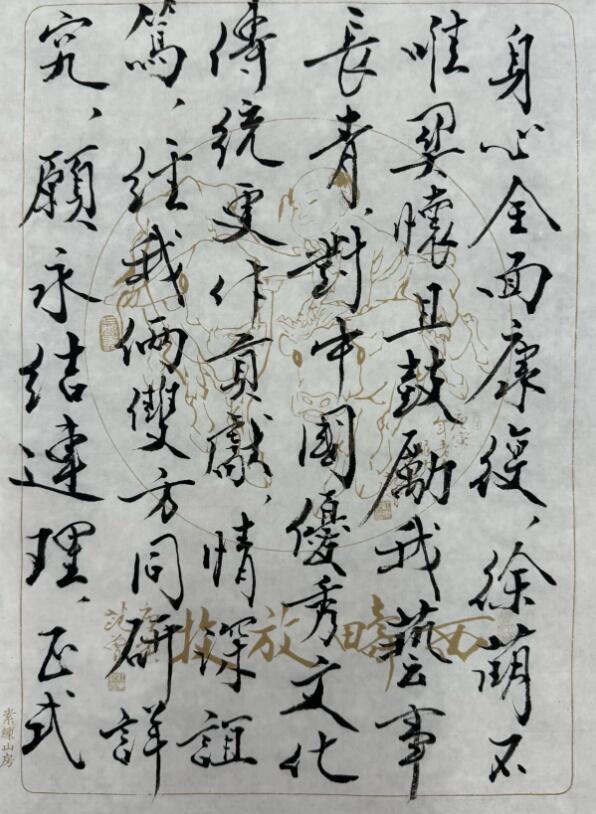 身心全面康復、徐萌不
唯興懷且鼓勵我藝事
長青、對中國優秀文化
傳統更作貢獻、情深誼
篤、經我倆雙方同研詳
究、願永結連理、正式
西疇放牧
素練山房